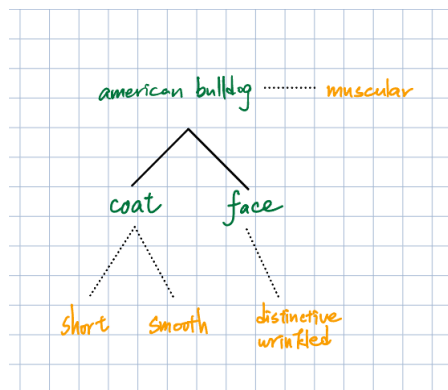 american bulldog muscular
coat face
short smooth distinctive
wrinkled